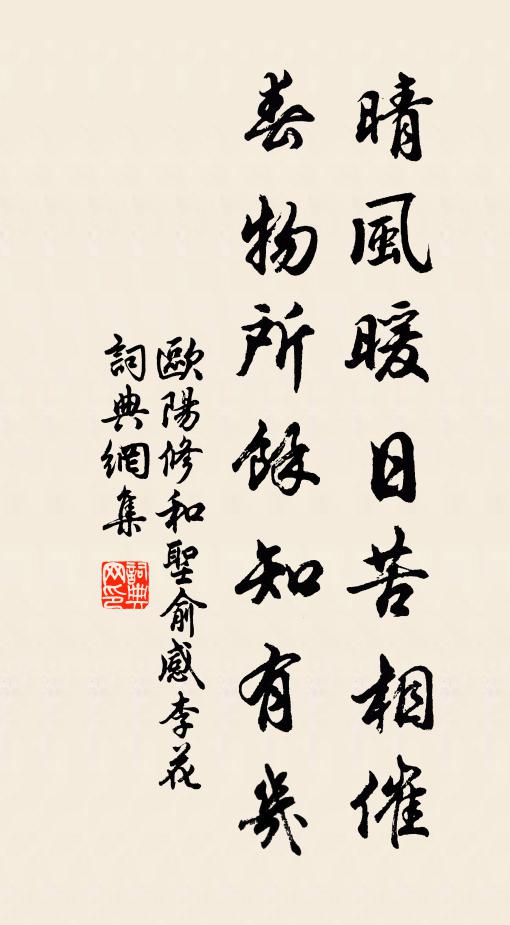 晴風暖日苦相催
春物所餘知有幾
歐陽修和聖俞感李花
詞典網集
詞典网印